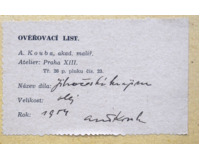 OVEŘOVACÍ LIST.
A. Kouba, akad. malíř.
Atelier: Praha XIII.
Tř. 20 p. pluku čís. 25.
Název díla: Jihočeská krajina
Velikost: olej
Rok: 1954